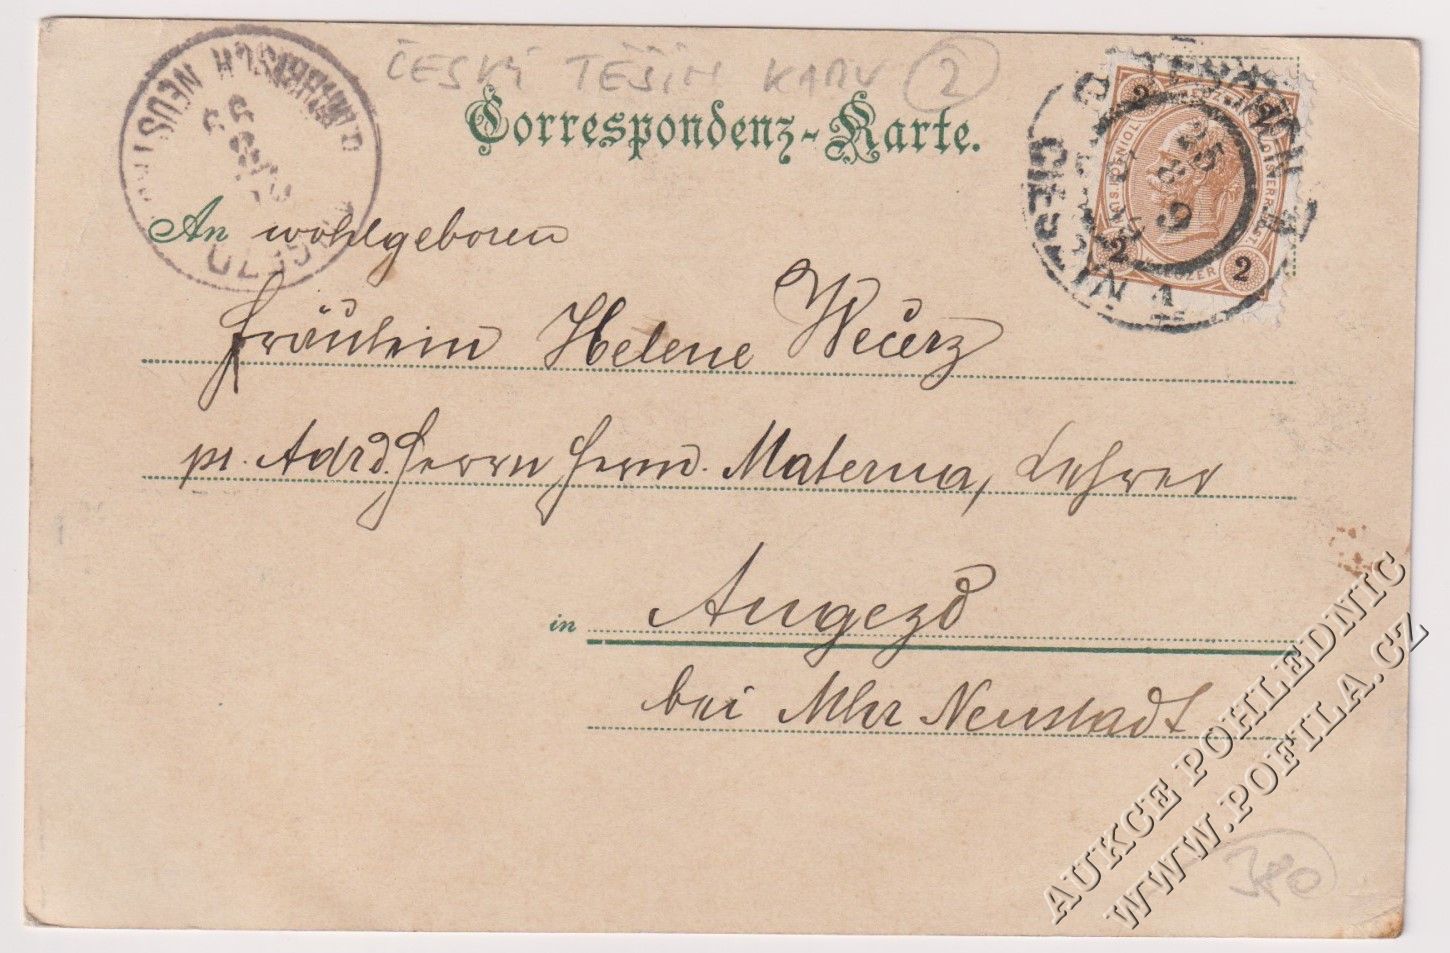 ČESKÝ TĚŠÍN KARV 2
Correspondenz-Karte.
MÄHRISCH NEUSTADT
TESCHEN
CIESZYN
25 8 9
2 2 2
An wohlgeboren
Fräulein Helene Wečerz
pr. Adrd. Herrn Herm. Materna, Lehrer
in Augezd
bei Mhr Neustadt
380
AUKCE POHLEDNIC
WWW.POFILA.CZ